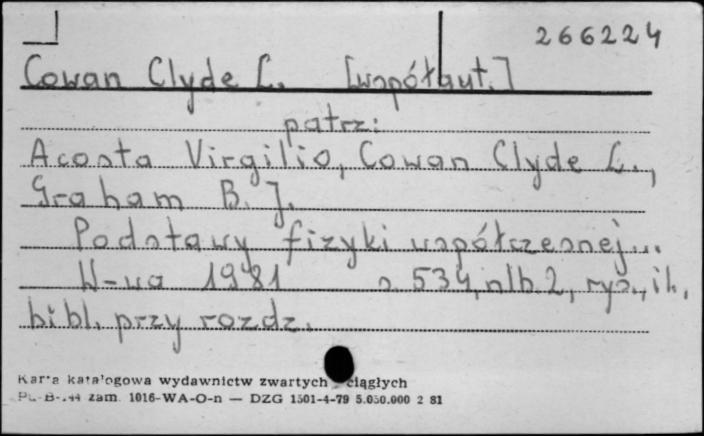 266224
Cowan Clyde L. [współaut.]
patrz:
Acosta Virgilio, Cowan Clyde L.,
Graham B. J.
Podstawy fizyki współczesnej...
W-wa 1981 s. 534, nlb. 2, rys., il.,
bibl. przy rozdz.
Karta katalogowa wydawnictw zwartych ciągłych
zam. 1016-WA-O-n — DZG 1501-4-79 5.050.000 2 81